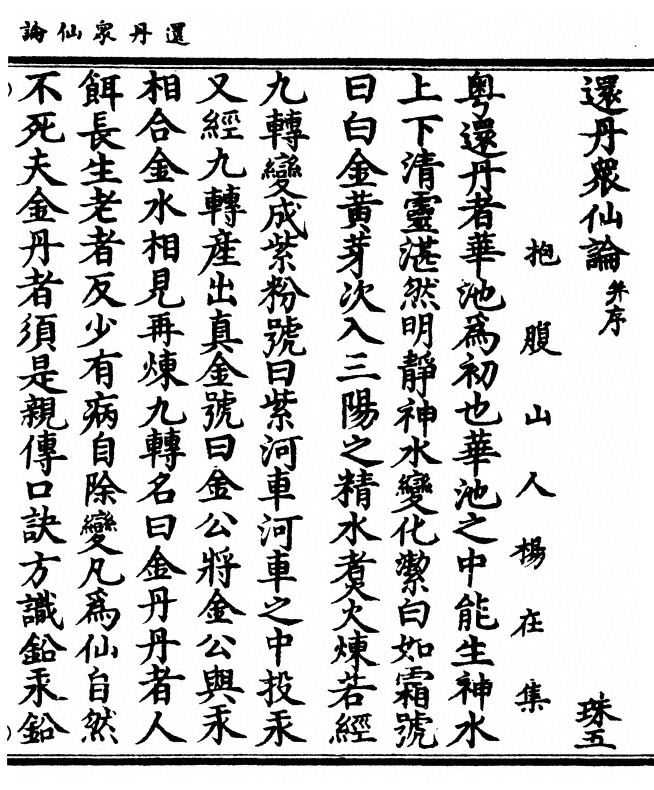 還丹衆仙論
還丹衆仙論并序 珠五
抱腹山人楊在集
粤還丹者華池爲初也華池之中能生神水
上下清靈湛然明靜神水變化潔白如霜號
曰白金黄芽次入三陽之精水煑火煉若經
九轉變成紫粉號曰紫河車河車之中投汞
又經九轉產出真金號曰金公將金公與汞
相合金水相見再煉九轉名曰金丹丹者人
餌長生老者反少有病自除變凡爲仙自然
不死夫金丹者須是親傳口訣方識鉛汞鉛